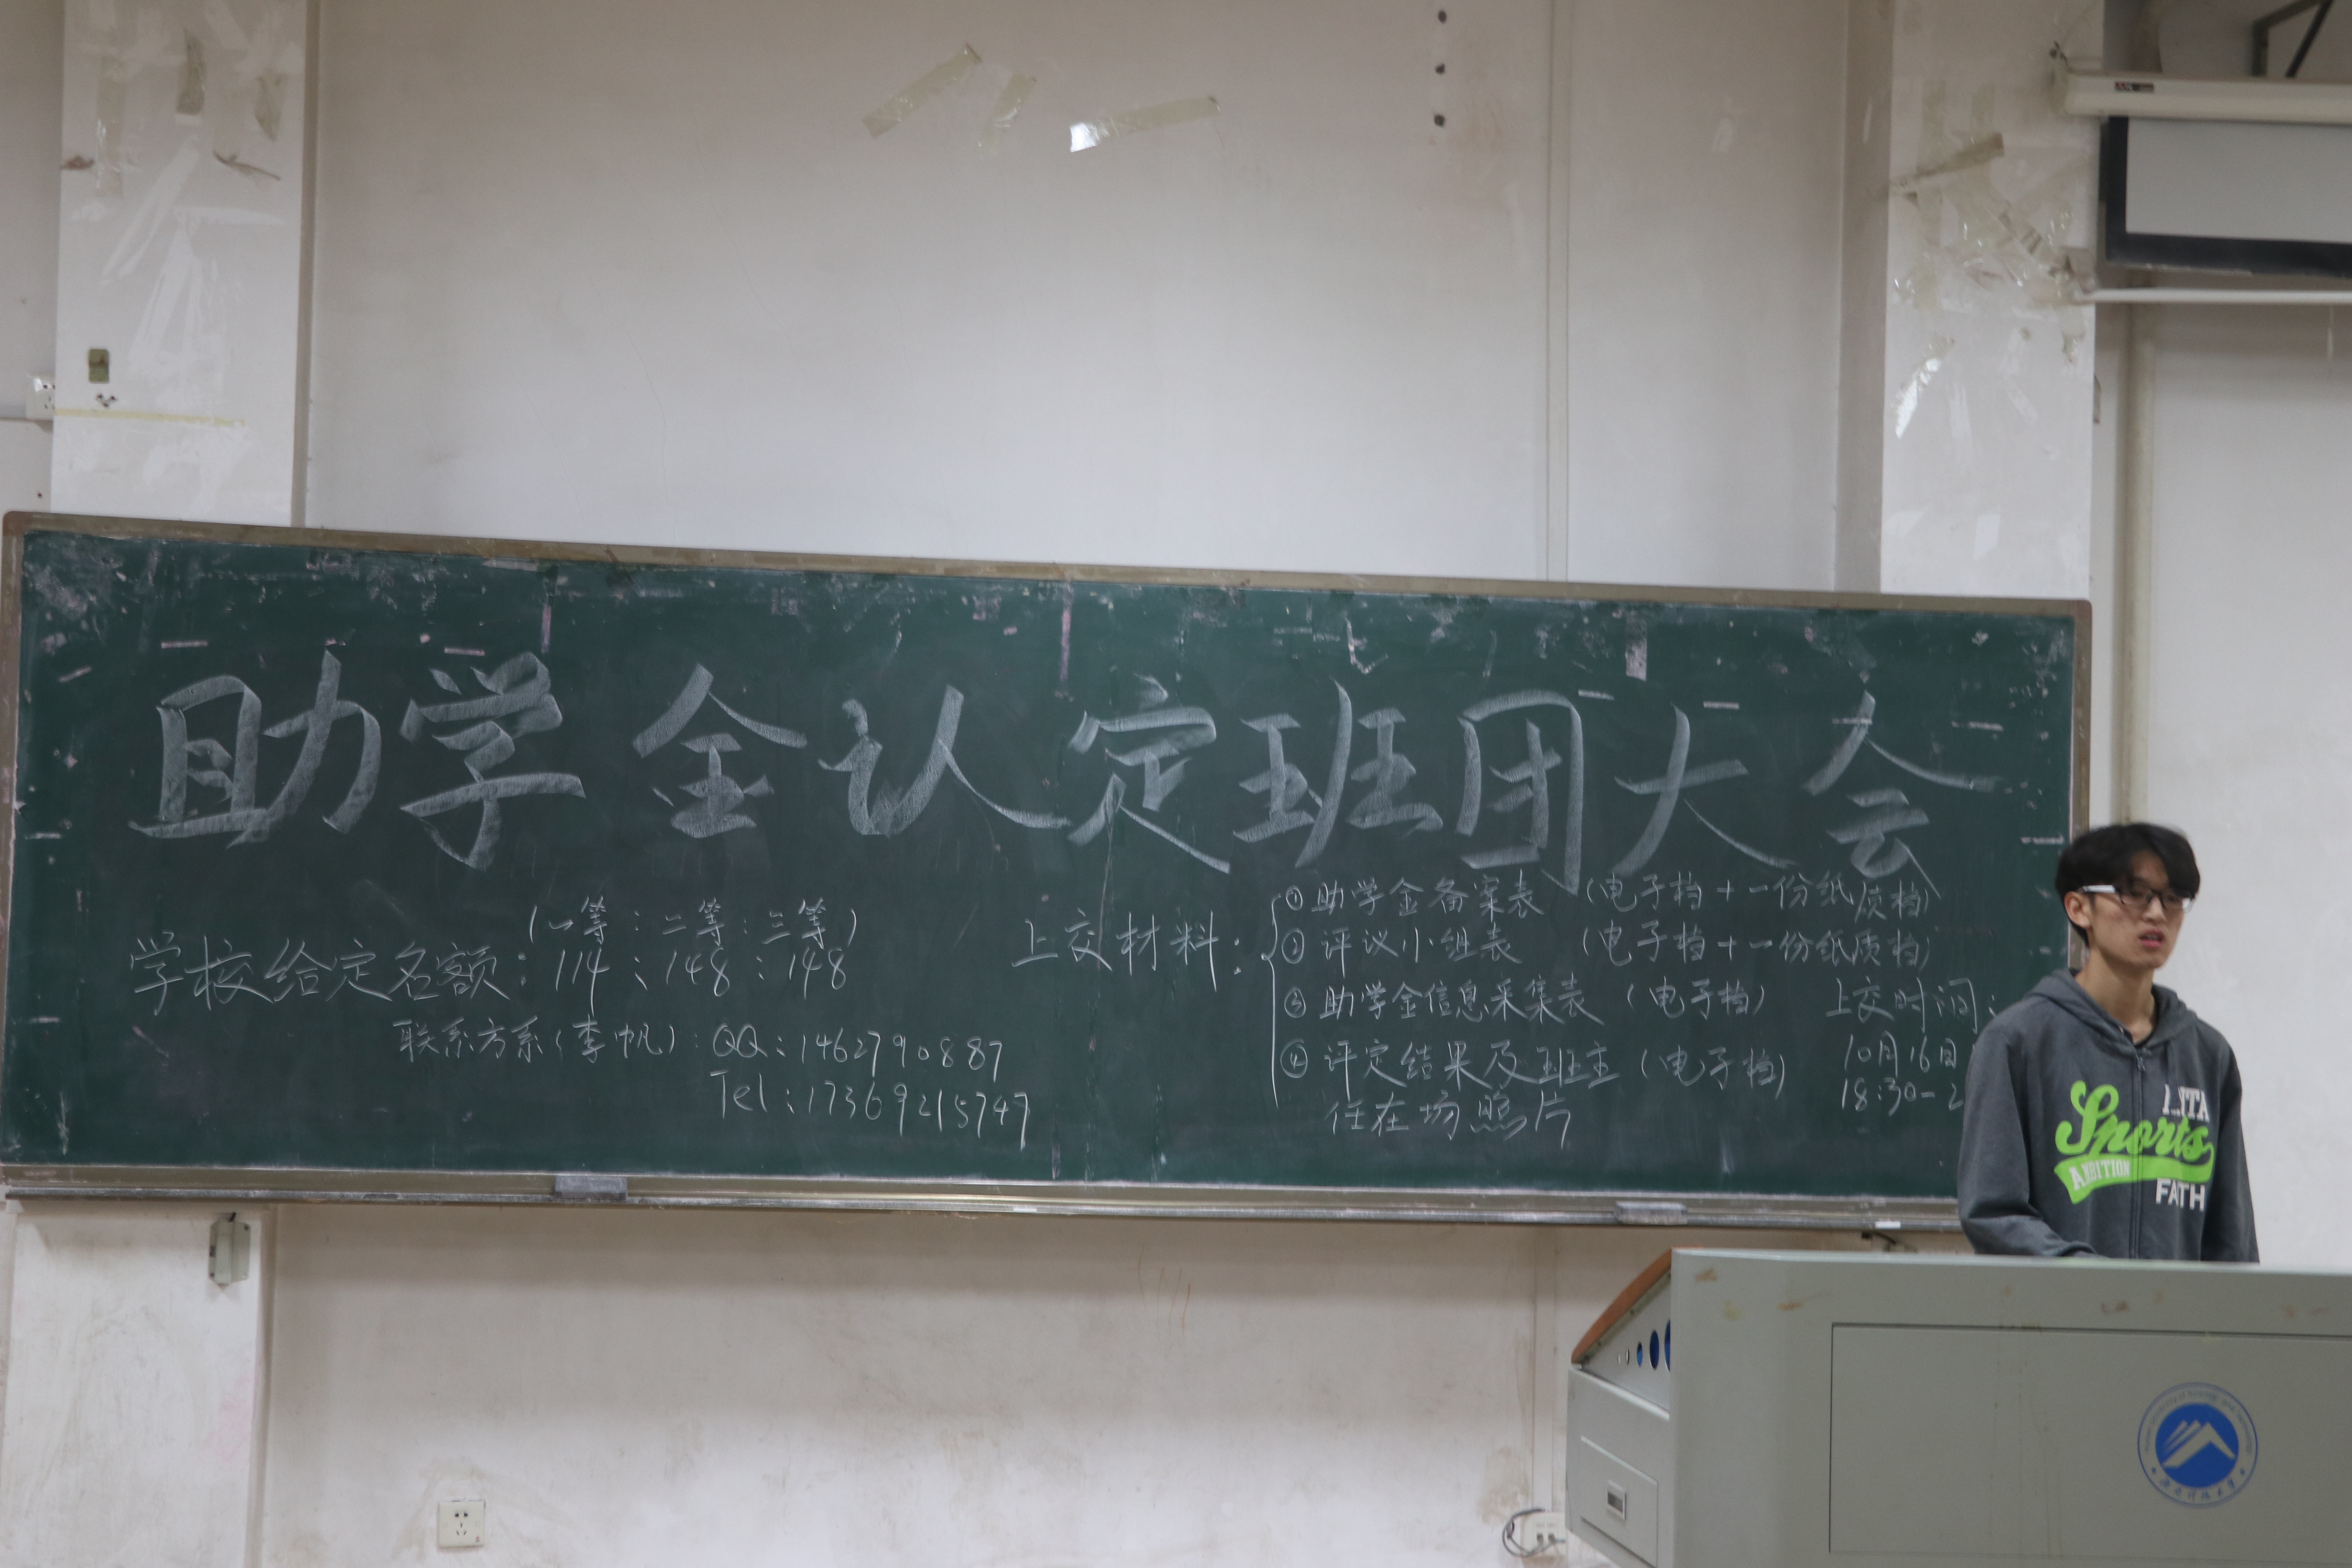 助学金认定班团大会
(一等:二等:三等)
学校给定名额:114:148:148
联系方系(李帆):QQ:1462790887
Tel:17369215747
上交材料:
①助学金备案表 (电子档+一份纸质档)
②评议小组表 (电子档+一份纸质档)
③助学金信息采集表 (电子档)
④评定结果及班主 (电子档)
任在场照片
上交时间:
10月16日
18:30-2
Sports
AMBITION
FATH